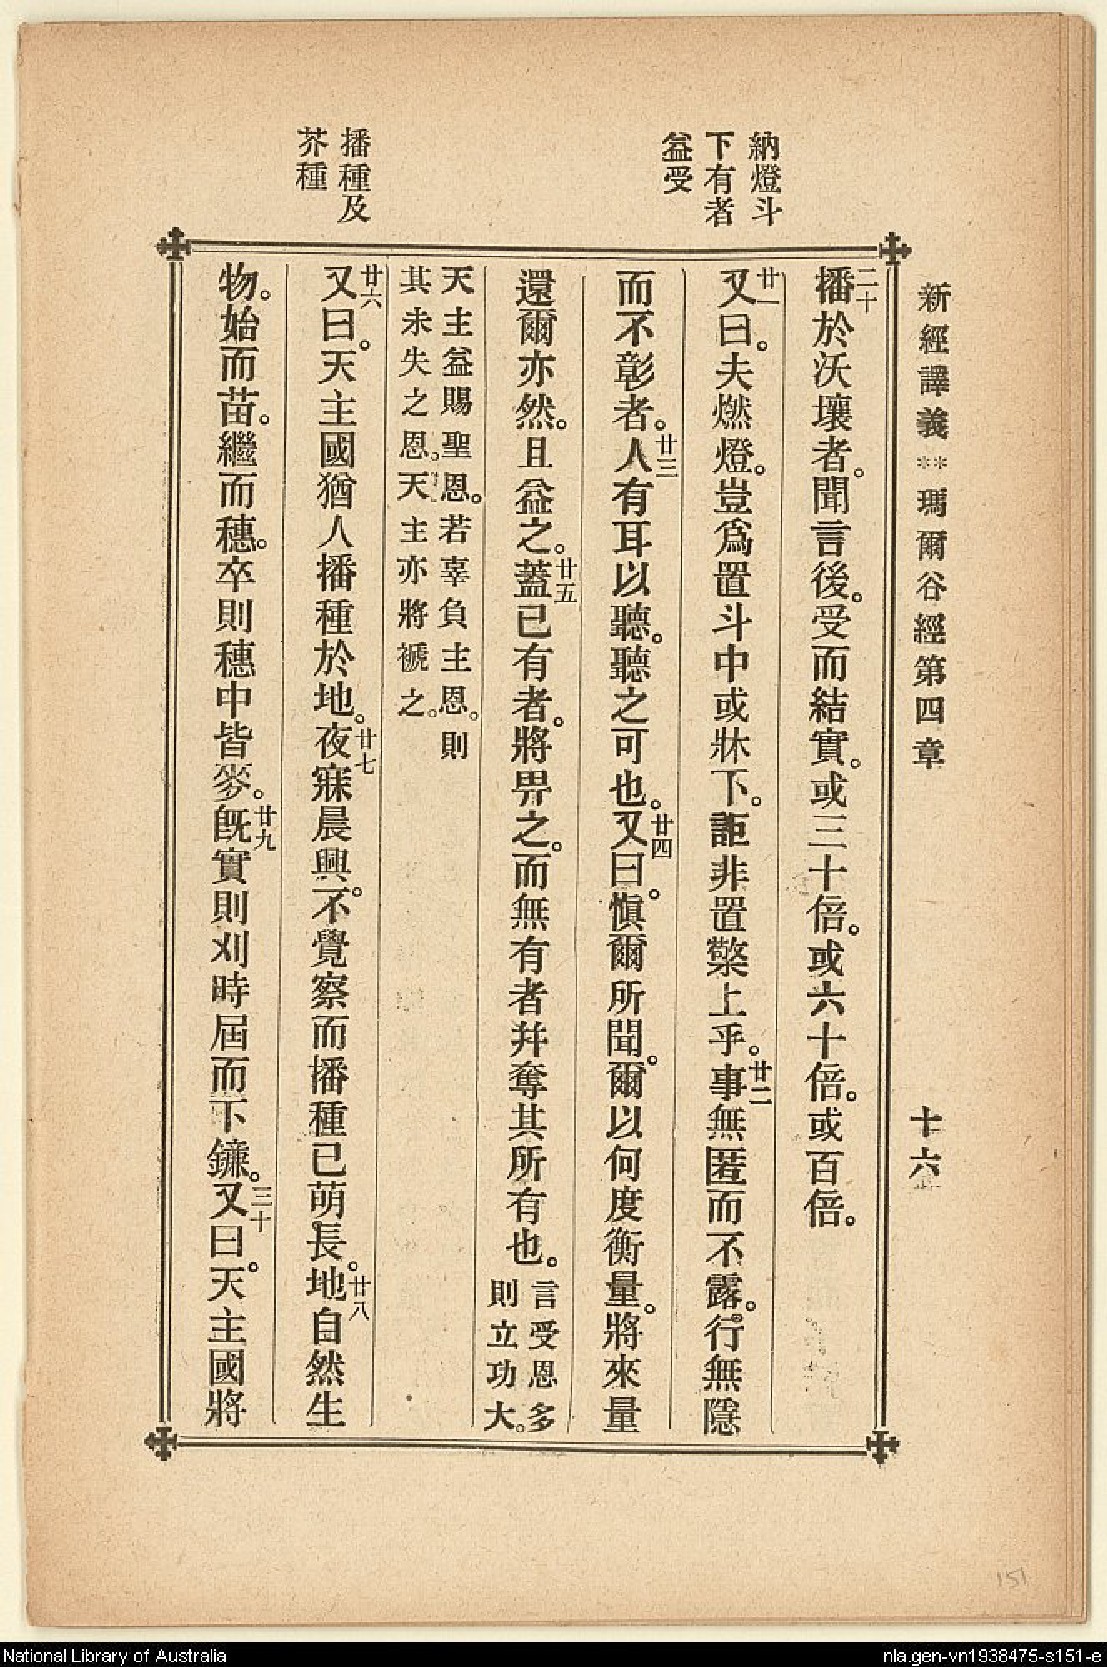 新經譯義**瑪爾谷經第四章 十六
納燈斗
下有者
益受
播種及
芥種
二十
播於沃壤者。聞言後。受而結實。或三十倍。或六十倍。或百倍。
廿一 廿二
又曰。夫燃燈。豈爲置斗中或牀下。詎非置檠上乎。事無匿而不露。行無隱
廿三 廿四
而不彰者。人有耳以聽。聽之可也。又曰。愼爾所聞。爾以何度衡量。將來量
廿五
還爾亦然。且益之。蓋已有者。將畀之。而無有者幷奪其所有也。言受恩多
則立功大。
天主益賜聖恩。若辜負主恩。則
其未失之恩。天主亦將褫之。
廿六 廿七 廿八
又曰。天主國猶人播種於地。夜寐晨興。不覺察而播種已萌長。地自然生
廿九 三十
物。始而苗。繼而穗。卒則穗中皆麥。旣實則刈時屆而下鐮。又曰。天主國將
151
National Library of Australia
nla.gen-vn1938475-s151-e